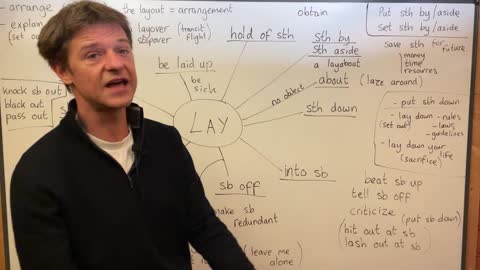 - arrange
the layout = arrangement
- explain
(set out
layover
stopover
(transit
flight)
obtain
hold of sth
sth by
sth aside
a layabout
about (laze around)
no object
sth down
be laid up
be
sick
knock sb out
black out
pass out
LAY
into sb
sb off
make sb
redundant
(leave me
alone)
Put sth by/aside
Set sth by/aside
save sth for future
money
time
resources
- put sth down
- lay down - rules
(set out) - laws
- guidelines
- lay down your
life
(sacrifice)
beat sb up
tell sb off
criticize (put sb down)
(hit out at sb)
lash out at sb)